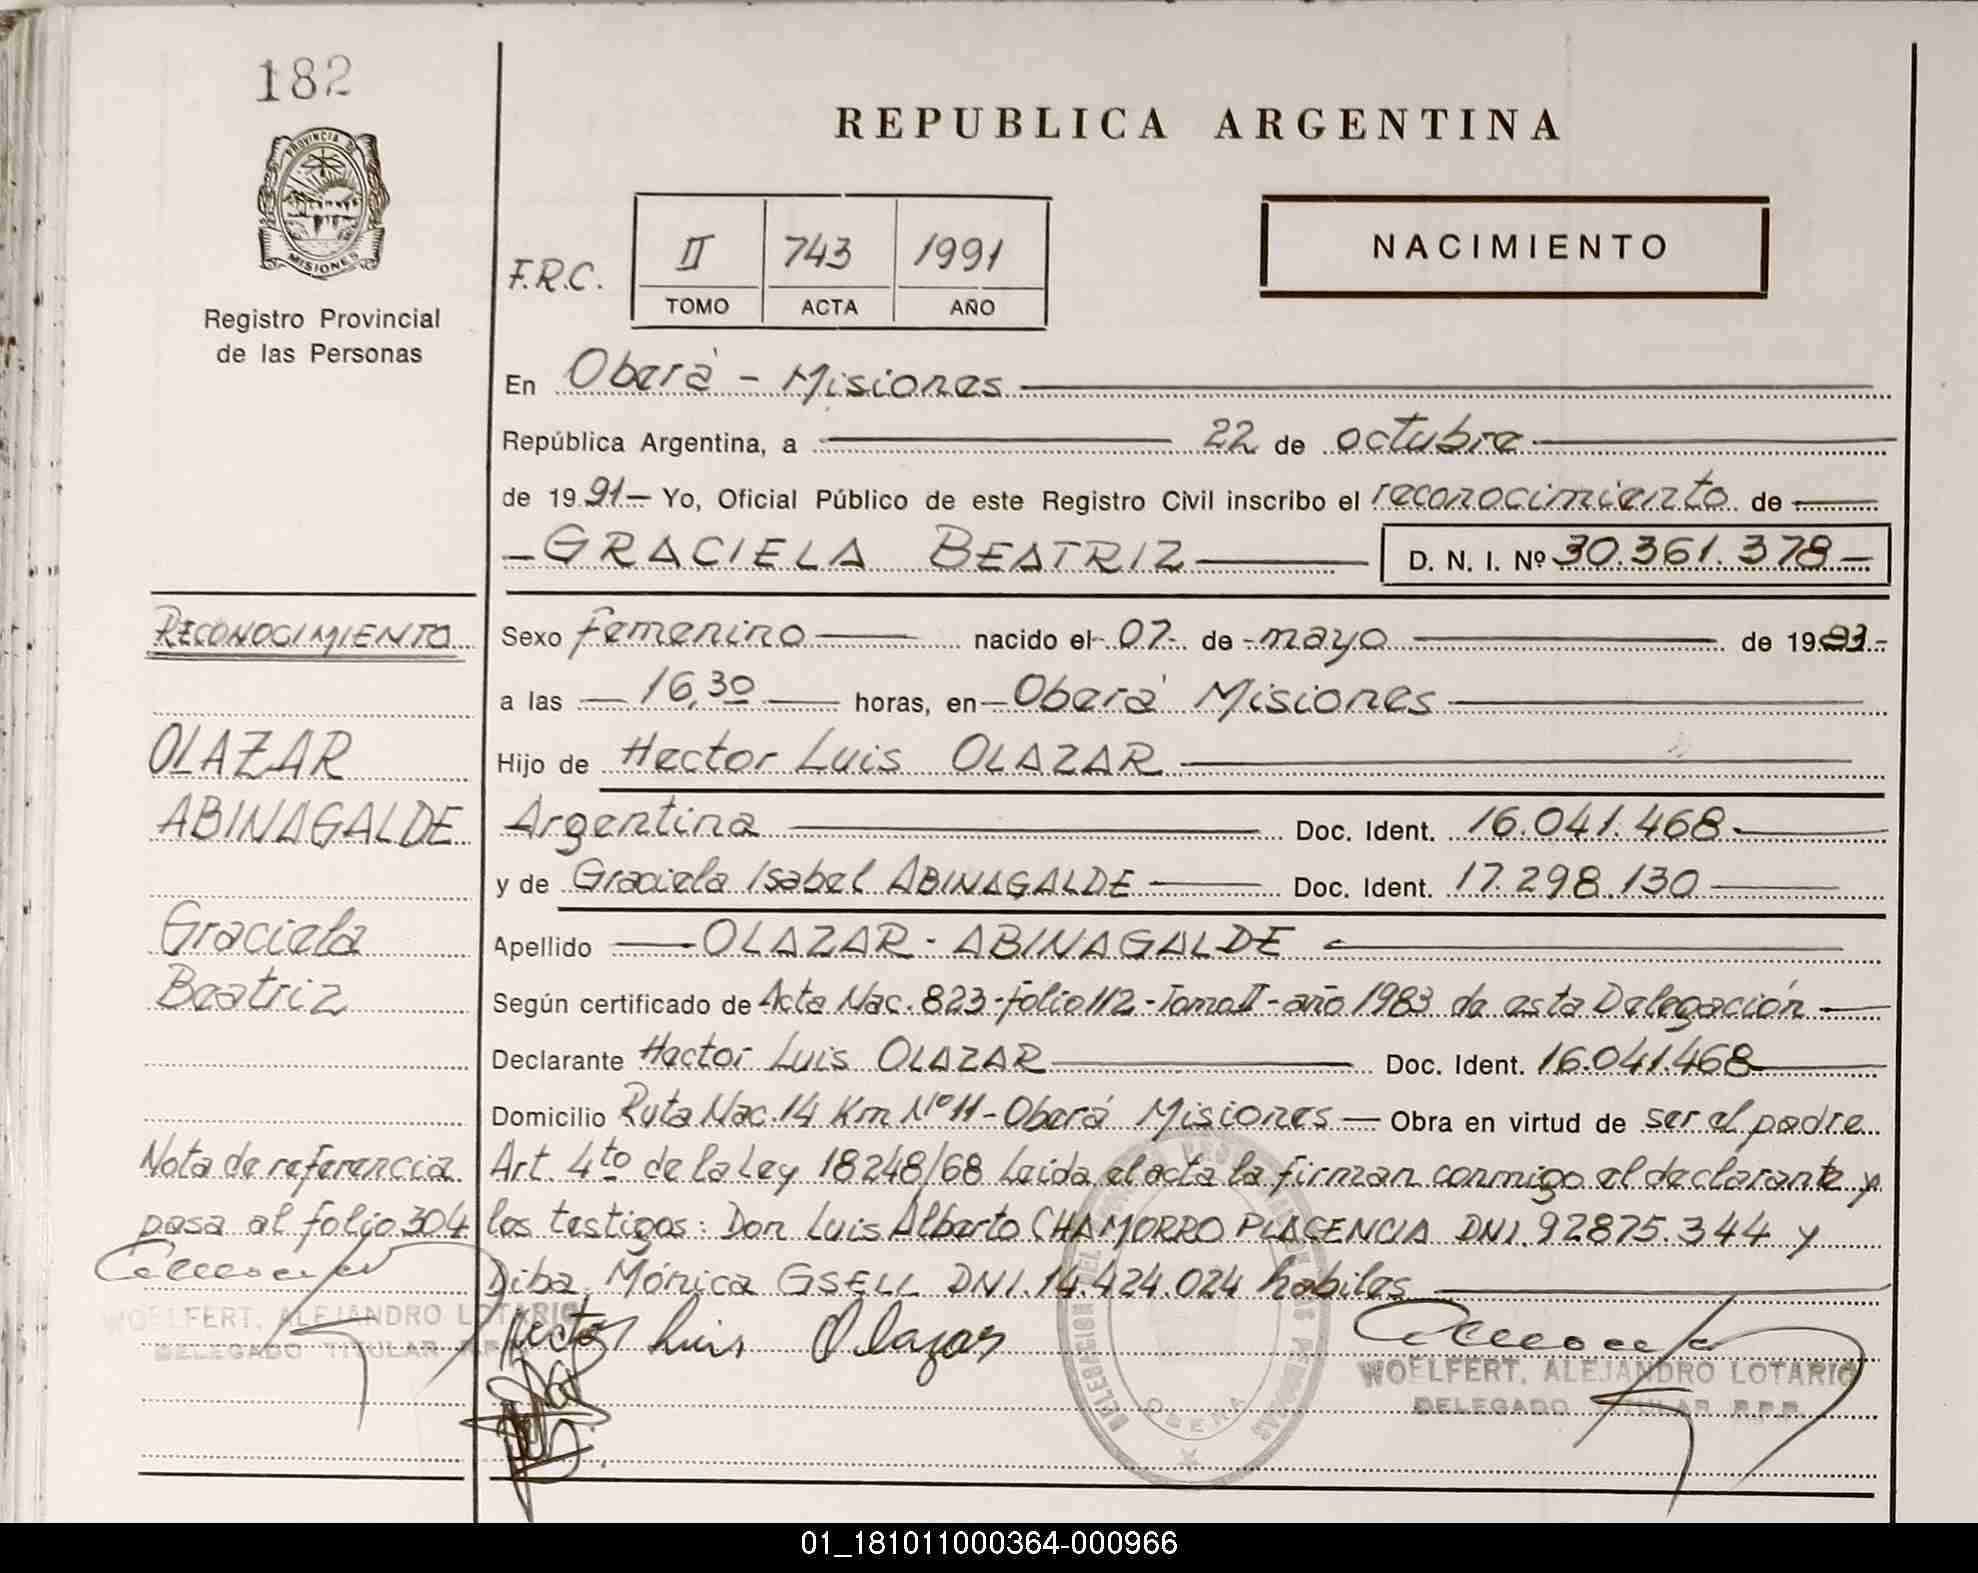 182
PROVINCIA DE
MISIONES
Registro Provincial
de las Personas
REPUBLICA ARGENTINA
F.R.C.
II 743 1991
TOMO ACTA AÑO
NACIMIENTO
En Oberá - Misiones
República Argentina, a 22 de octubre
de 1991- Yo, Oficial Público de este Registro Civil inscribo el reconocimiento de
- GRACIELA BEATRIZ D. N. I. Nº 30.361.378-
RECONOCIMIENTO
Sexo femenino nacido el 07 de mayo de 1983-
a las 16,30 horas, en Oberá Misiones
OLAZAR
Hijo de Hector Luis OLAZAR
ABINAGALDE
Argentina Doc. Ident. 16.041.468
y de Graciela Isabel ABINAGALDE Doc. Ident. 17.298.130
Graciela
Apellido OLAZAR - ABINAGALDE
Beatriz
Según certificado de Acta Nac. 823-folio 112-Tomo II-año 1983 de esta Delegación
Declarante Hector Luis OLAZAR Doc. Ident. 16.041.468
Domicilio Ruta Nac. 14 Km Nº 11-Oberá Misiones Obra en virtud de ser el padre
Nota de referencia
Art. 4to de la Ley 18248/68 Leida el acta la firman conmigo el declarante y
pasa al folio 304
los testigos: Don Luis Alberto CHAMORRO PLACENCIA DNI. 92875.344 y
Diba Mónica GSELL DNI. 14.424.024 habiles
WOELFERT, ALEJANDRO LOTARIO
DELEGADO TITULAR R.P.P.
Hector Luis Olazar
OBERA
WOELFERT, ALEJANDRO LOTARIO
DELEGADO TITULAR R.P.P.
01_181011000364-000966